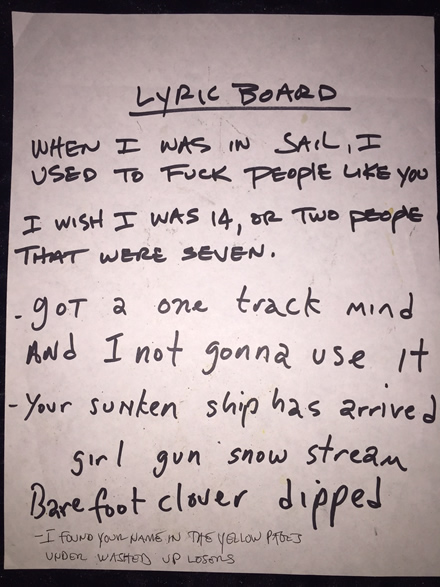 LYRIC BOARD
WHEN I WAS IN SAIL, I
USED TO FUCK PEOPLE LIKE YOU
I WISH I WAS 14, OR TWO PEOPLE
THAT WERE SEVEN.
- GOT a one track mind
AND I not gonna use it
- Your sunken ship has arrived
girl gun snow stream
Barefoot clover dipped
- I FOUND YOUR NAME IN THE YELLOW PAGES
UNDER WASHED UP LOSERS